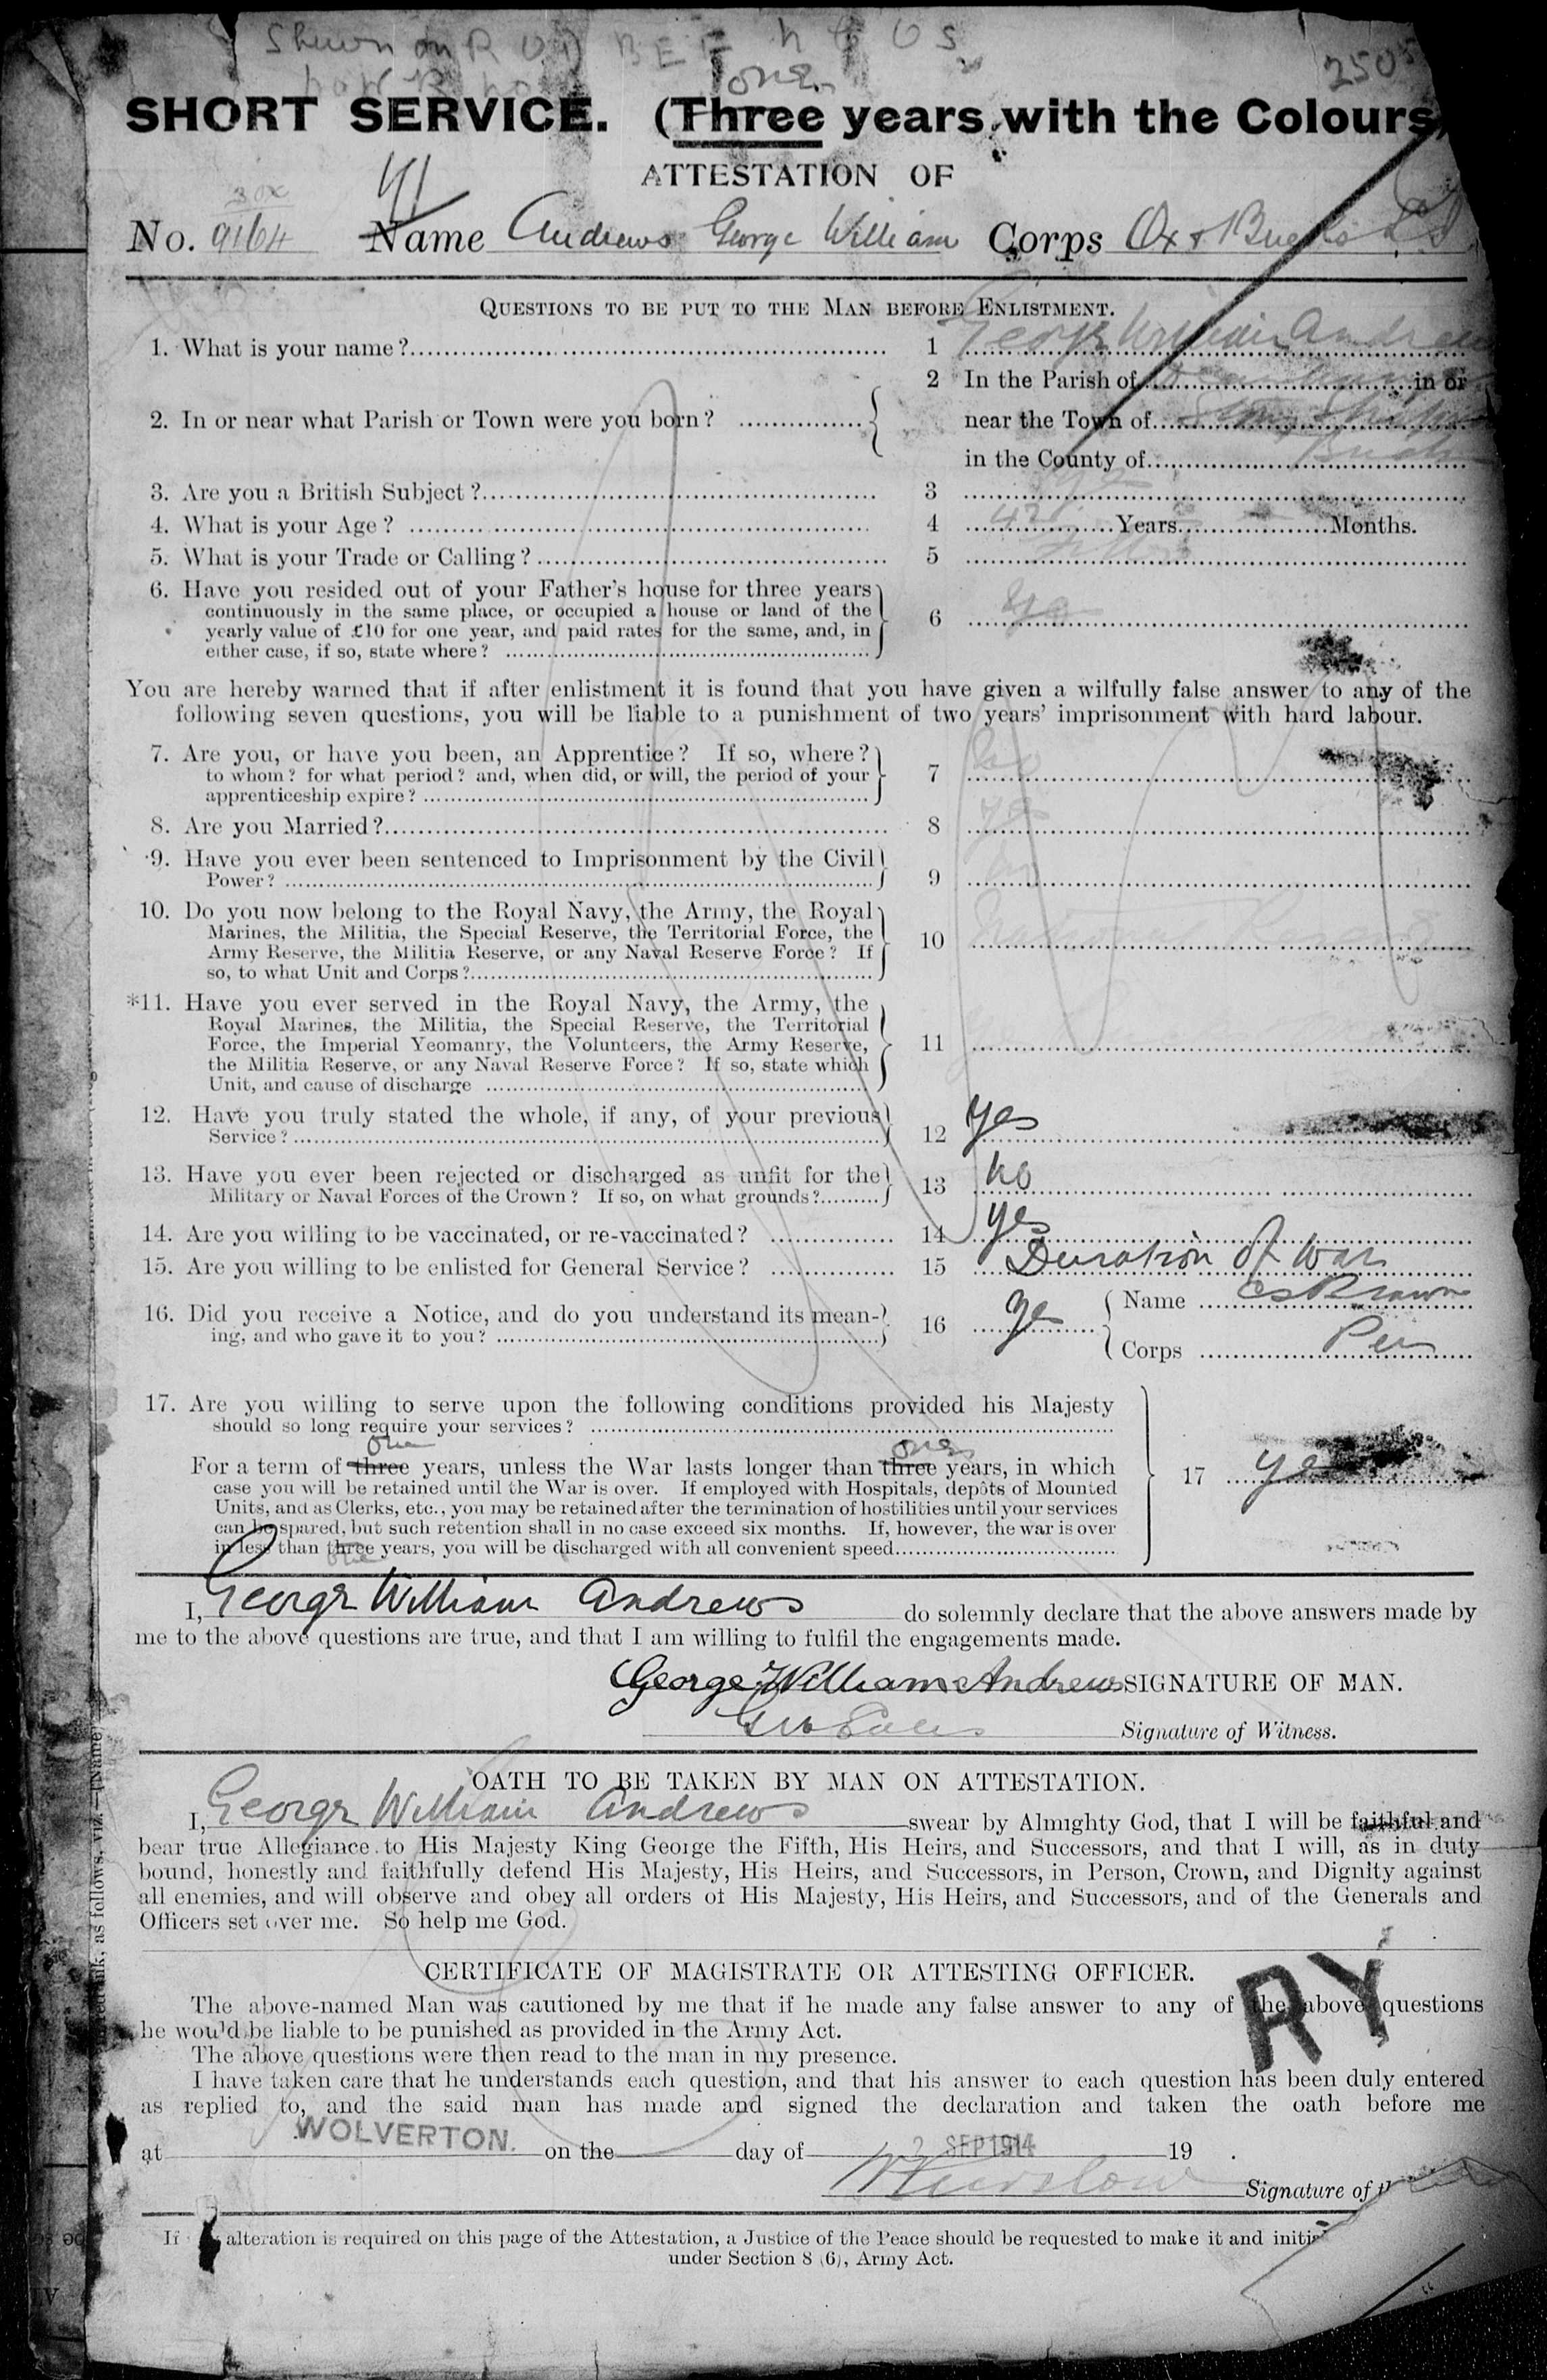 Shewn on R
one
2505
SHORT SERVICE. (Three years with the Colours)
ATTESTATION OF
No. 9164 Name Andrews George William Corps Ox & Bucks L.I.
QUESTIONS TO BE PUT TO THE MAN BEFORE ENLISTMENT.
1. What is your name? 1 George William Andrews
2 In the Parish of in or
2. In or near what Parish or Town were you born? near the Town of Stony Stratford
in the County of Bucks
3. Are you a British Subject? 3 Yes
4. What is your Age? 4 Years Months.
5. What is your Trade or Calling? 5
6. Have you resided out of your Father's house for three years
continuously in the same place, or occupied a house or land of the
yearly value of £10 for one year, and paid rates for the same, and, in 6 Yes
either case, if so, state where?
You are hereby warned that if after enlistment it is found that you have given a wilfully false answer to any of the
following seven questions, you will be liable to a punishment of two years' imprisonment with hard labour.
7. Are you, or have you been, an Apprentice? If so, where?
to whom? for what period? and, when did, or will, the period of your 7 No
apprenticeship expire?
8. Are you Married? 8 Yes
9. Have you ever been sentenced to Imprisonment by the Civil
Power? 9 No
10. Do you now belong to the Royal Navy, the Army, the Royal
Marines, the Militia, the Special Reserve, the Territorial Force, the
Army Reserve, the Militia Reserve, or any Naval Reserve Force? If 10
so, to what Unit and Corps?
*11. Have you ever served in the Royal Navy, the Army, the
Royal Marines, the Militia, the Special Reserve, the Territorial
Force, the Imperial Yeomanry, the Volunteers, the Army Reserve, 11
the Militia Reserve, or any Naval Reserve Force? If so, state which
Unit, and cause of discharge
12. Have you truly stated the whole, if any, of your previous
Service? 12 Yes
13. Have you ever been rejected or discharged as unfit for the
Military or Naval Forces of the Crown? If so, on what grounds? 13 No
14. Are you willing to be vaccinated, or re-vaccinated? 14 Yes
15. Are you willing to be enlisted for General Service? 15 Duration of War
16. Did you receive a Notice, and do you understand its mean- 16 Yes Name
ing, and who gave it to you? Corps
17. Are you willing to serve upon the following conditions provided his Majesty
should so long require your services?
one one
For a term of three years, unless the War lasts longer than three years, in which 17 Yes
case you will be retained until the War is over. If employed with Hospitals, depôts of Mounted
Units, and as Clerks, etc., you may be retained after the termination of hostilities until your services
can be spared, but such retention shall in no case exceed six months. If, however, the war is over
in less than three years, you will be discharged with all convenient speed
one
I, George William Andrews do solemnly declare that the above answers made by
me to the above questions are true, and that I am willing to fulfil the engagements made.
George William Andrews SIGNATURE OF MAN.
Signature of Witness.
OATH TO BE TAKEN BY MAN ON ATTESTATION.
I, George William Andrews swear by Almighty God, that I will be faithful and
bear true Allegiance to His Majesty King George the Fifth, His Heirs, and Successors, and that I will, as in duty
bound, honestly and faithfully defend His Majesty, His Heirs, and Successors, in Person, Crown, and Dignity against
all enemies, and will observe and obey all orders of His Majesty, His Heirs, and Successors, and of the Generals and
Officers set over me. So help me God.
CERTIFICATE OF MAGISTRATE OR ATTESTING OFFICER.
RY
The above-named Man was cautioned by me that if he made any false answer to any of the above questions
he would be liable to be punished as provided in the Army Act.
The above questions were then read to the man in my presence.
I have taken care that he understands each question, and that his answer to each question has been duly entered
as replied to, and the said man has made and signed the declaration and taken the oath before me
at WOLVERTON. on the day of 2 SEP 1914 19 .
Signature of
If alteration is required on this page of the Attestation, a Justice of the Peace should be requested to make it and initial
under Section 8 (6), Army Act.